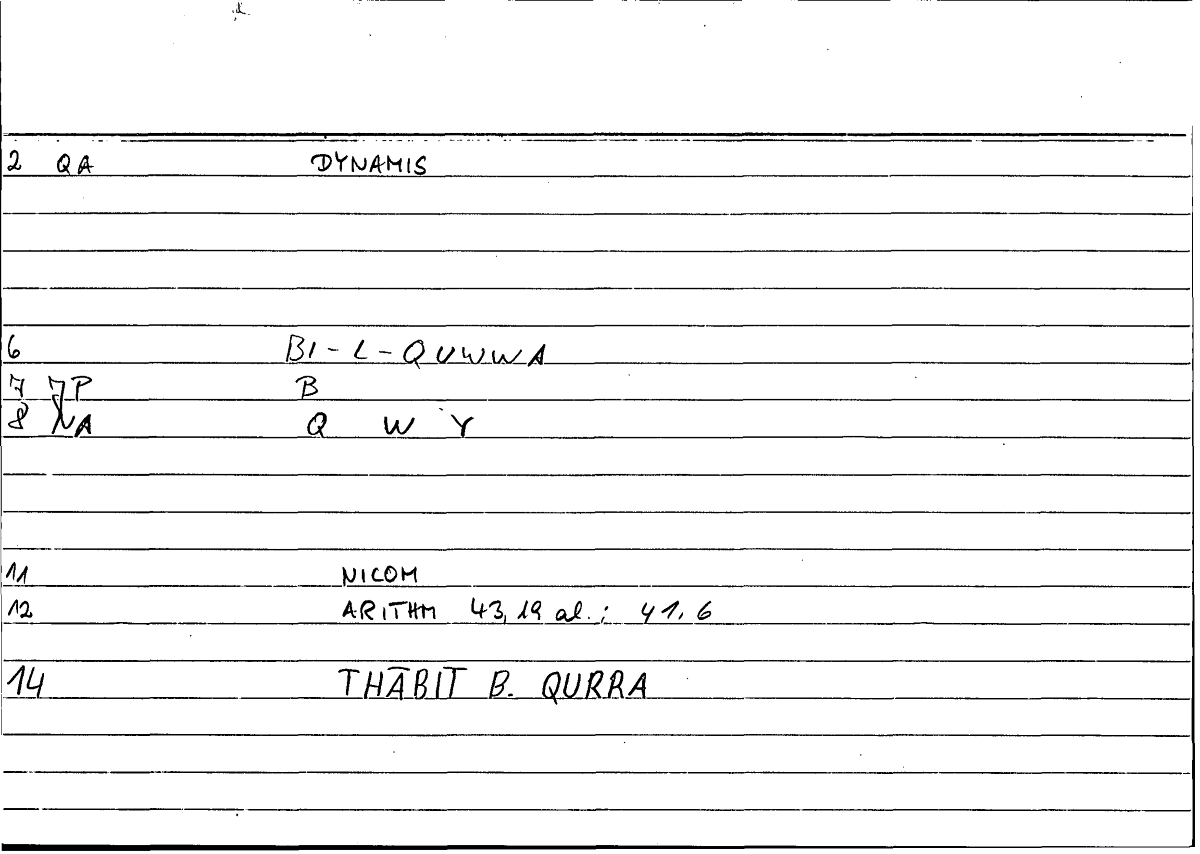 2 QA DYNAMIS
6 BI-L-QUWWA
7 7P B
8 NA Q W Y
11 NICOM
12 ARITHM 43,19 al.; 41,6
14 THĀBIT B. QURRA